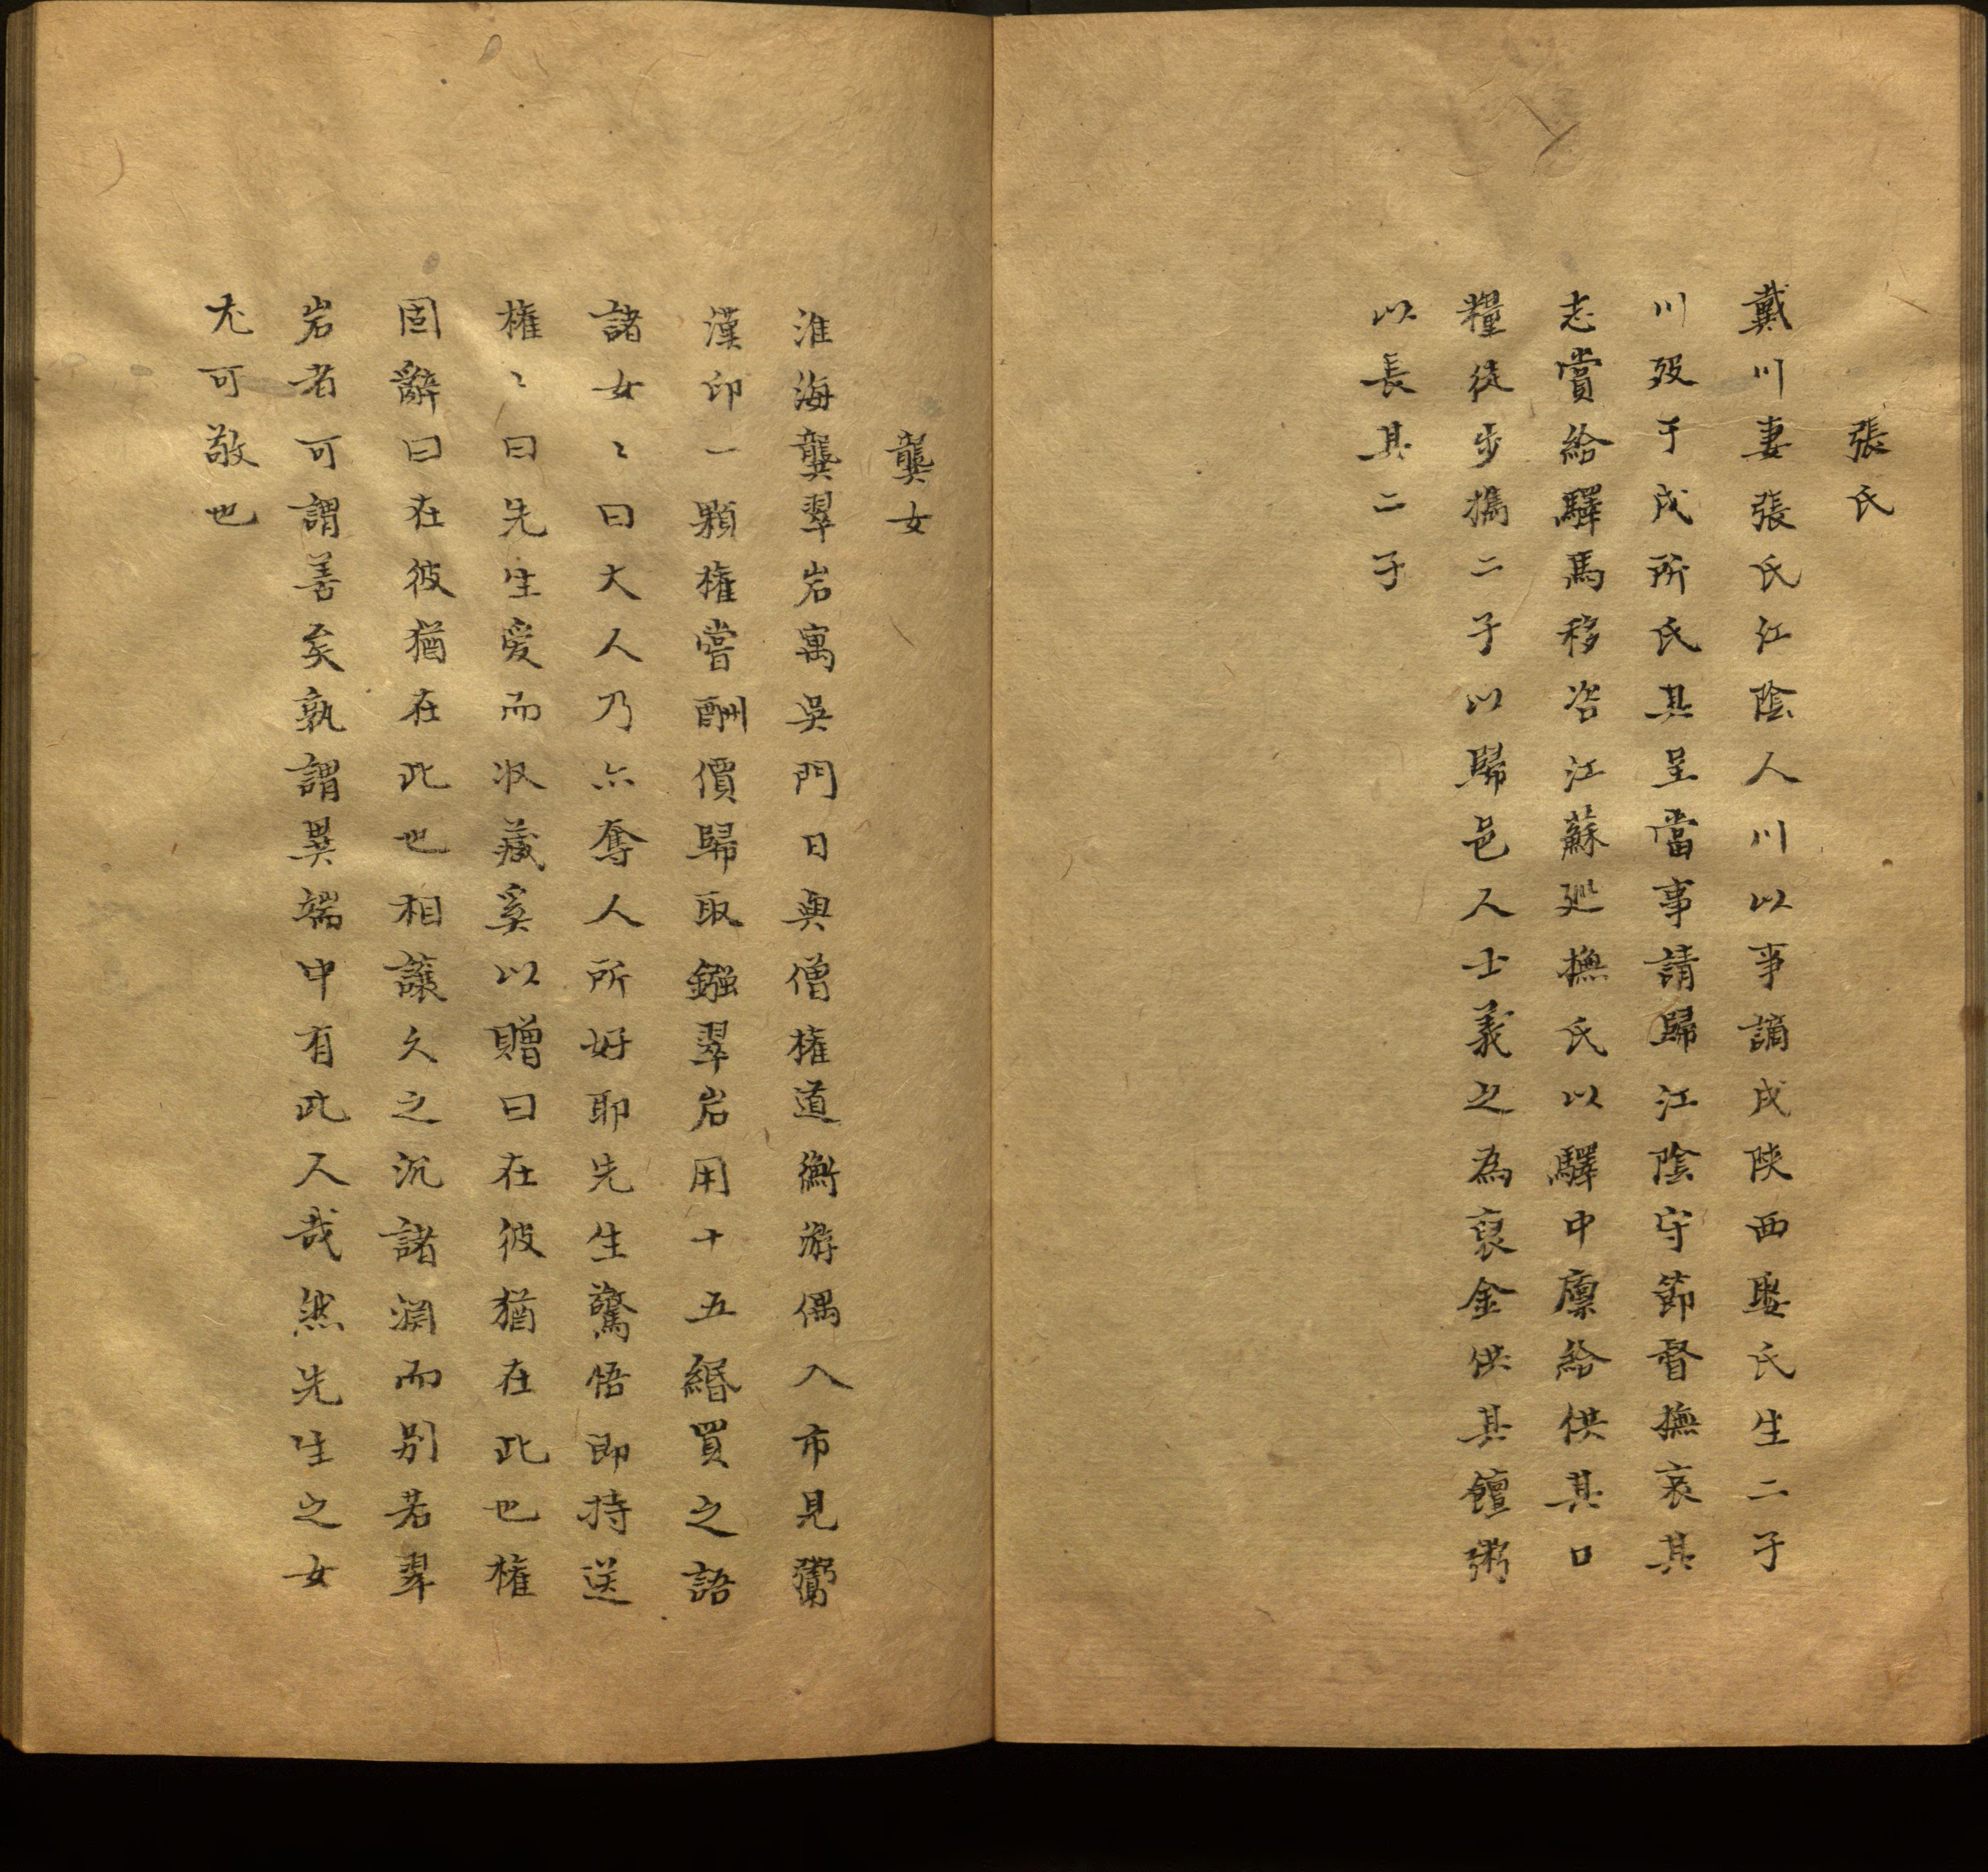 張氏
戴川妻張氏江陰人川以事謫戍陝西娶氏生二子
川歿于戍所氏具呈當事請歸江陰守節督撫哀其
志賞給驛馬移咨江蘇廵撫氏以驛中廪給供其口
糧徒步攜二子以歸邑人士義之為裒金供其饘粥
以長其二子
龔女
淮海龔翠岩寓吳門日與僧權道衡游偶入市見鬻
漢印一顆權嘗酬價歸取鏹翠岩用十五緡買之語
諸女〻曰大人乃亦奪人所好耶先生驚悟即持送
權〻曰先生爱而収藏奚以贈曰在彼猶在此也權
固辭曰在彼猶在此也相讓久之沉諸淵而别若翠
岩者可謂善矣孰謂異端中有此人哉然先生之女
尤可敬也